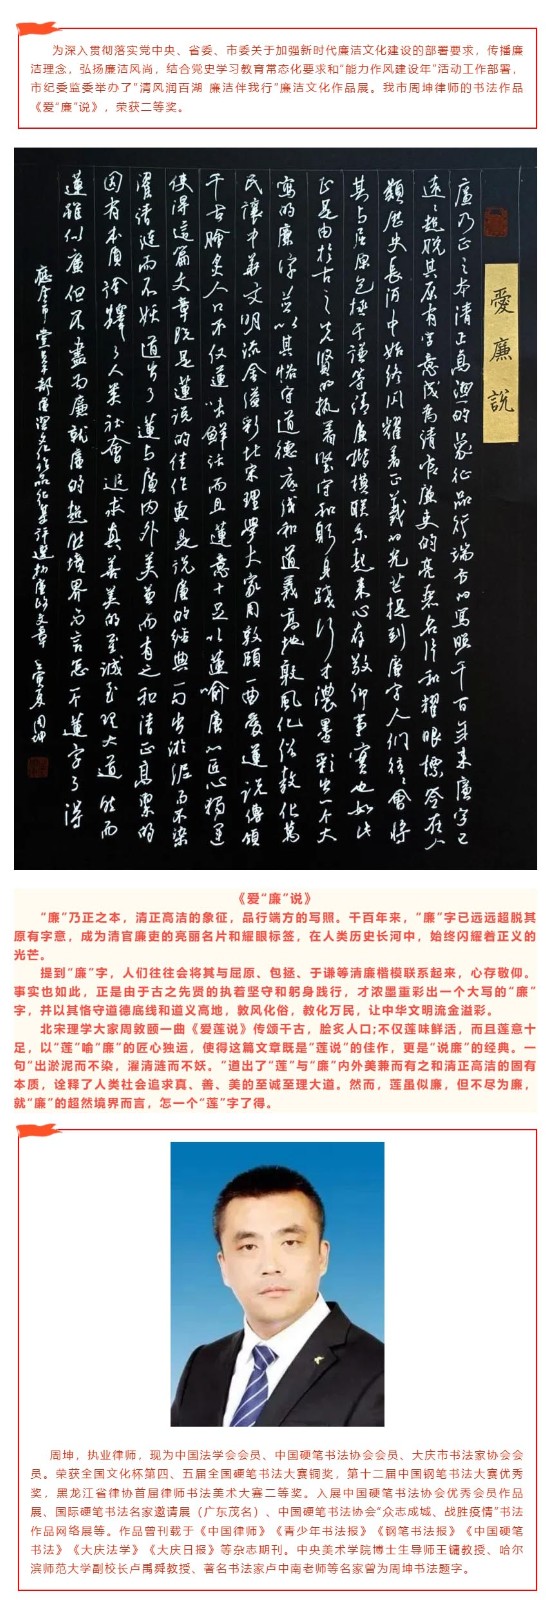 为深入贯彻落实党中央、省委、市委关于加强新时代廉洁文化建设的部署要求，传播廉
洁理念，弘扬廉洁风尚，结合党史学习教育常态化要求和“能力作风建设年”活动工作部署，
市纪委监委举办了“清风润百湖 廉洁伴我行”廉洁文化作品展。我市周坤律师的书法作品
《爱“廉”说》，荣获二等奖。
愛廉說
廉乃正之本清正高潔的象征品行端方的寫照千百年來廉字已
遠遠超脫其原有字意成為清官廉吏的亮麗名片和耀眼標簽在人
類歷史長河中始終閃耀著正義的光芒提到廉字人們往往會將
其与屈原包拯于謙等清廉楷模联系起来心存敬仰事實也如此
正是由於古之先賢的执着堅守和躬身踐行才濃墨彩出一个大
寫的廉字並以其恪守道德底线和道義高地敦風化俗教化萬
民讓中華文明流金溢彩北宋理學大家周敦頤一曲愛蓮說傳頌
千古膾炙人口不仅蓮味鮮活而且蓮意十足以蓮喻廉的匠心獨運
使得這篇文章既是蓮說的佳作更是說廉的经典一句出淤泥而不染
濯清漣而不妖道出了蓮与廉内外美兼而有之和清正高潔的
固有本質詮釋了人类社會追求真善美的至诚至理大道然而
蓮雖似廉但不盡为廉就廉的超然境界而言怎不蓮字了得
《爱“廉”说》
“廉”乃正之本，清正高洁的象征，品行端方的写照。千百年来，“廉”字已远远超脱其
原有字意，成为清官廉吏的亮丽名片和耀眼标签，在人类历史长河中，始终闪耀着正义的
光芒。
提到“廉”字，人们往往会将其与屈原、包拯、于谦等清廉楷模联系起来，心存敬仰。
事实也如此，正是由于古之先贤的执着坚守和躬身践行，才浓墨重彩出一个大写的“廉”
字，并以其恪守道德底线和道义高地，敦风化俗，教化万民，让中华文明流金溢彩。
北宋理学大家周敦颐一曲《爱莲说》传颂千古，脍炙人口;不仅莲味鲜活，而且莲意十
足，以“莲”喻“廉”的匠心独运，使得这篇文章既是“莲说”的佳作，更是“说廉”的经典。一
句“出淤泥而不染，濯清涟而不妖。”道出了“莲”与“廉”内外美兼而有之和清正高洁的固有
本质，诠释了人类社会追求真、善、美的至诚至理大道。然而，莲虽似廉，但不尽为廉，
就“廉”的超然境界而言，怎一个“莲”字了得。
周坤，执业律师，现为中国法学会会员、中国硬笔书法协会会员、大庆市书法家协会会
员。荣获全国文化杯第四、五届全国硬笔书法大赛铜奖，第十二届中国钢笔书法大赛优秀
奖，黑龙江省律协首届律师书法美术大赛二等奖。入展中国硬笔书法协会优秀会员作品
展、国际硬笔书法名家邀请展（广东茂名）、中国硬笔书法协会“众志成城、战胜疫情”书法
作品网络展等。作品曾刊载于《中国律师》《青少年书法报》《钢笔书法报》《中国硬笔
书法》《大庆法学》《大庆日报》等杂志期刊。中央美术学院博士生导师王镛教授、哈尔
滨师范大学副校长卢禹舜教授、著名书法家卢中南老师等名家曾为周坤书法题字。